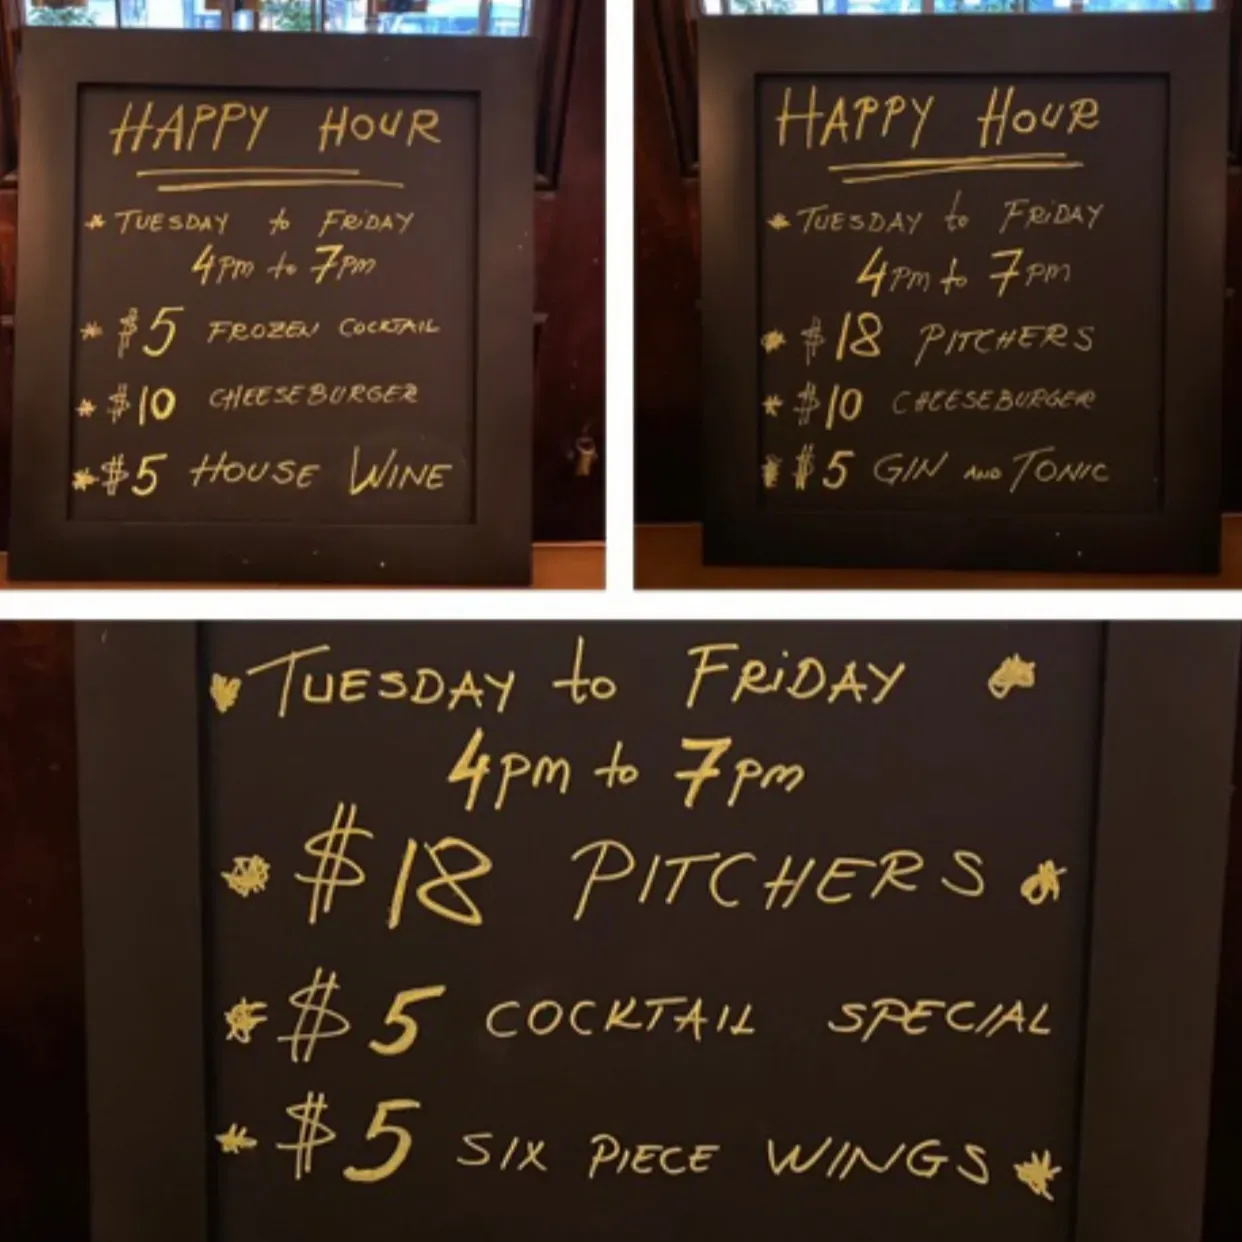 HAPPY HOUR
* TUESDAY to FRiDAY
4pm to 7pm
* $5 FROZEN COCKTAIL
* $10 CHEESEBURGER
* $5 HOUSE WINE
HAPPY HOUR
* TUESDAY to FRiDAY
4pm to 7pm
* $18 PITCHERS
* $10 CHEESEBURGER
* $5 GIN AND TONIC
* TUESDAY to FRiDAY *
4pm to 7pm
* $18 PITCHERS *
* $5 COCKTAIL SPECIAL
* $5 SIX PIECE WINGS *